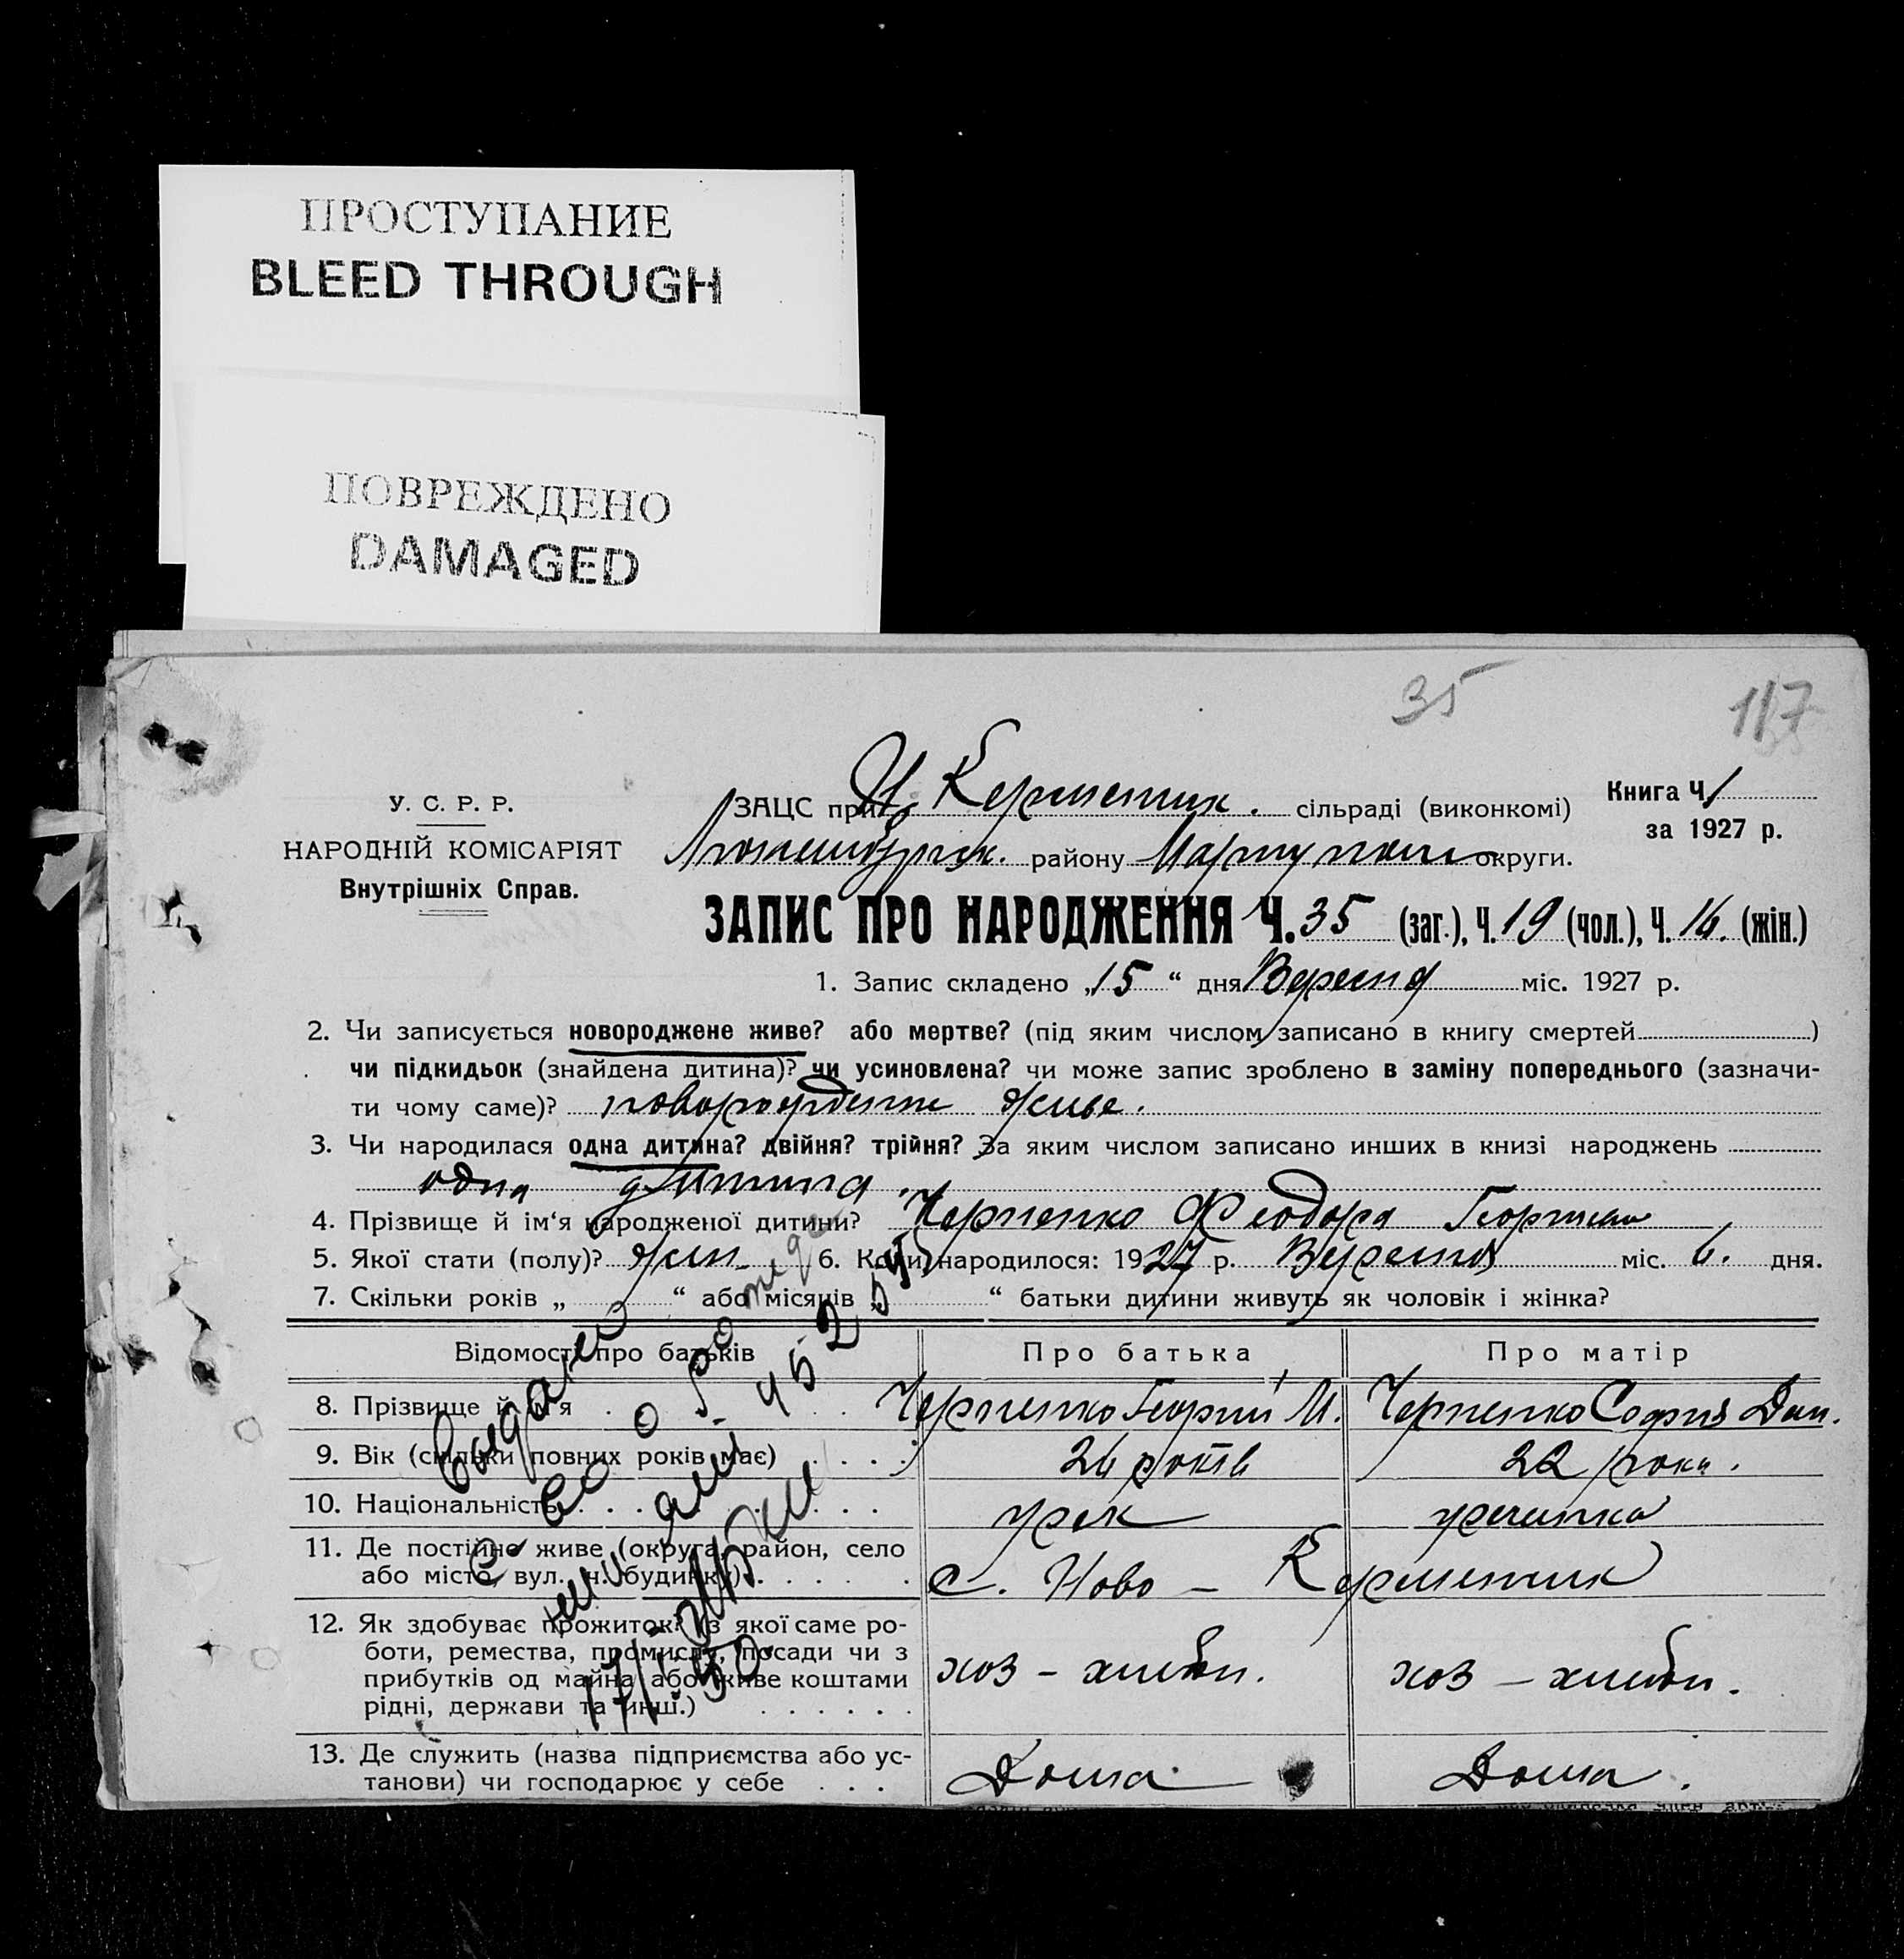 ПРОСТУПАНИЕ
BLEED THROUGH
ПОВРЕЖДЕНО
DAMAGED
35
117
У. С. Р. Р.
НАРОДНІЙ КОМІСАРІЯТ
Внутрішніх Справ.
ЗАЦС при Н. Керменчик. сільраді (виконкомі)
Книга Ч. 1
за 1927 р.
району Маріупол округи.
ЗАПИС ПРО НАРОДЖЕННЯ Ч. 35 (заг.), Ч. 19 (чол.), Ч. 16. (жін.)
1. Запис складено „15“ дня Вересня міс. 1927 р.
2. Чи записується новороджене живе? або мертве? (під яким числом записано в книгу смертей )
чи підкидьок (знайдена дитина)? чи усиновлена? чи може запис зроблено в заміну попереднього (зазначи-
ти чому саме)? новорождене живе.
3. Чи народилася одна дитина? двійня? трійня? За яким числом записано инших в книзі народжень
одна дитина.
4. Прізвище й ім‘я народженої дитини? Черненко Феодора Георгиев
5. Якої стати (полу)? жін. 6. Коли народилося: 1927 р. Вересня міс. 6. дня.
7. Скільки років „ “ або місяців „ “ батьки дитини живуть як чоловік і жінка?
Відомості про батьків Про батька Про матір
8. Прізвище й ім‘я Черненко Георгий М. Черненко София Дан.
9. Вік (скільки повних років має) 26 років 22 роки.
10. Національність грек гречанка
11. Де постійно живе (округа, район, село
або місто, вул. н. будинку) с. Ново - Керменчик
12. Як здобуває прожиток? (з якої саме ро-
боти, ремества, промислу, посади чи з
прибутків од майна або живе коштами
рідні, держави та инш.) хоз - хлебн. хоз - хлебн.
13. Де служить (назва підприємства або ус-
танови) чи господарює у себе Дома Дома.
выдано
с-во о рожде
нии